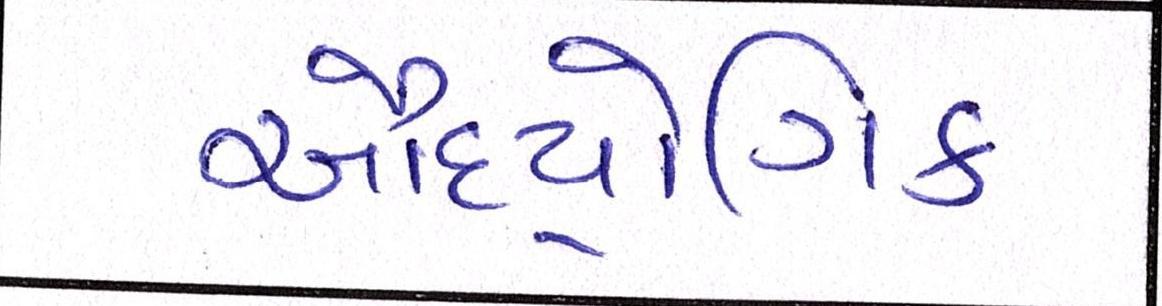 ઔદ્યોગિક